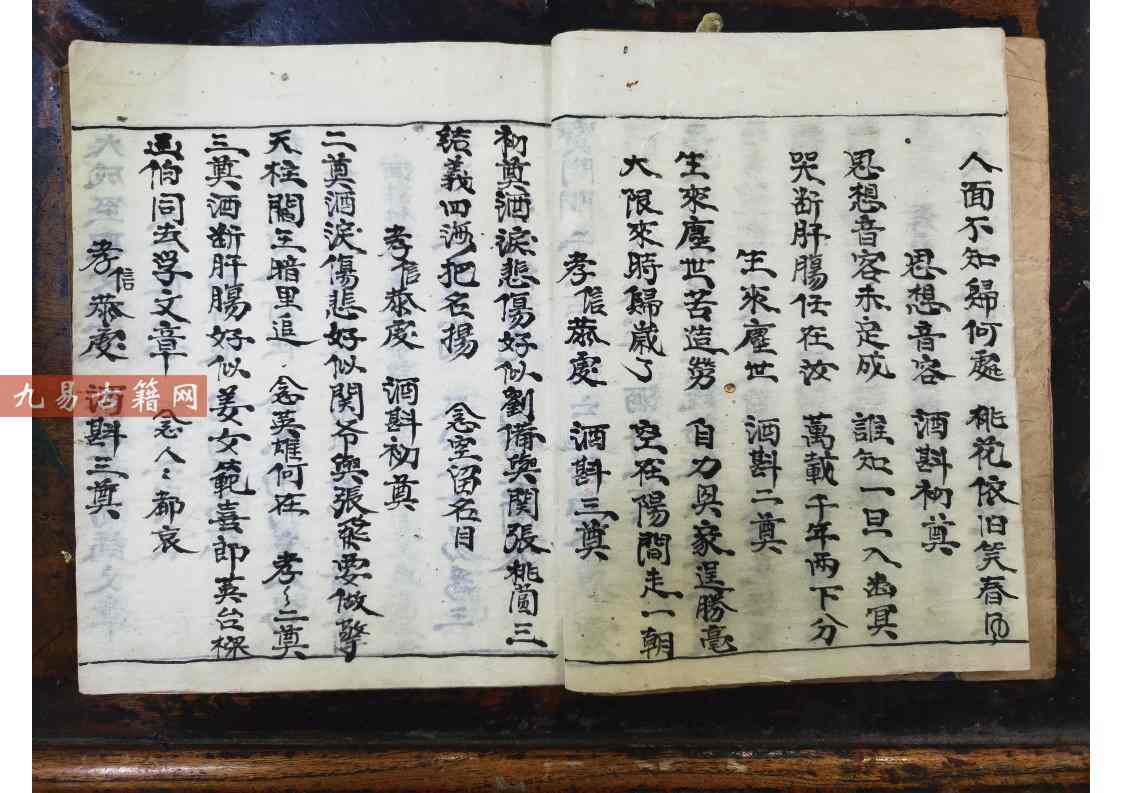 人面不知歸何處 桃花依旧笑春風
思想音容 酒斟初奠
思想音容未足成 誰知一旦入幽冥
哭断肝腸任在汝 萬載千年两下分
生來塵世 酒斟二奠
生來塵世苦造劳 自力與家逞勝毫
大限來時歸歲了 空在陽間走一朝
孝信恭虔 酒斟三奠
初奠酒淚悲傷好似劉備與関張桃園三
結義四海把名揚 念空留名目
孝信恭虔 酒斟初奠
二奠酒淚傷悲好似関爷與張飛要做擎
天柱閻王暗里追 念英雄何在 孝〻二奠
三奠酒断肝腸好似姜女範喜郎英台樑
山伯同去學文章 念人〻都哀
孝信恭虔 酒斟三奠
九易古籍网